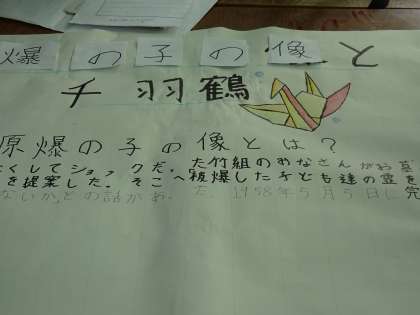 爆の子の像と
千羽鶴
原爆の子の像とは？
くしてショックだった竹組のみなさんがお墓
を提案した。そこへ被爆した子ども達の霊を
ないか、との話があった。1958年5月5日に完